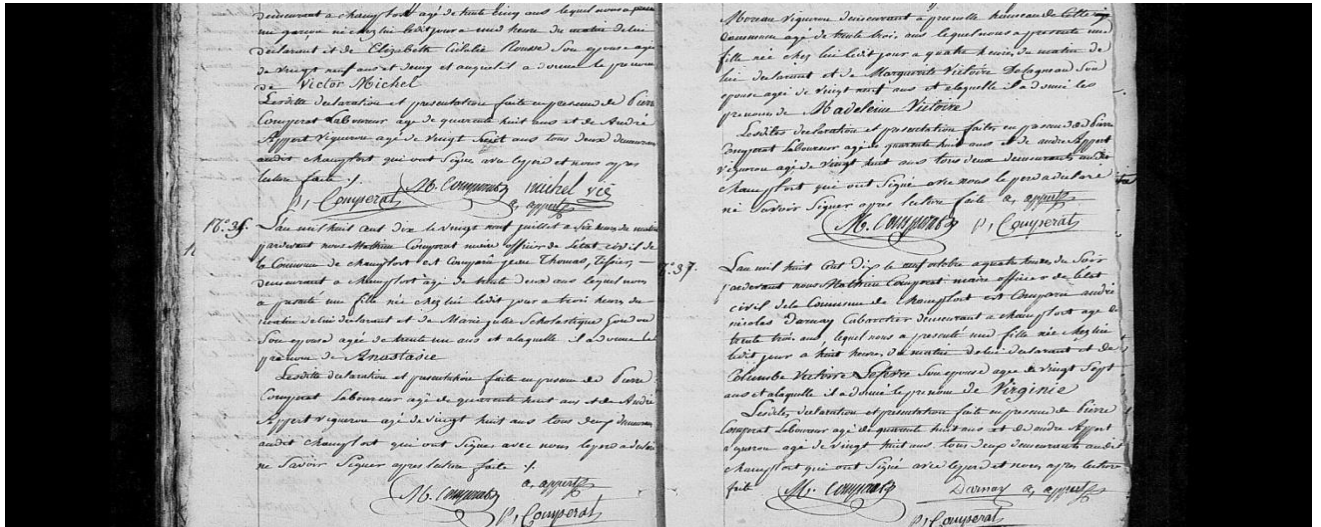 demeurant a champfort agé de trente cinq ans lequel nous a presenté
un garcon né chez lui ledit jour a une heure du matin de lui
declarant et de Elizabeth Rousse Son epouse agée
de vingt neuf ans et demy et auquel il a donné le prenom
de Victor Michel
Lesditte declaration et presentation faite en presence de Pierre
Comperat Laboureur agé de quarente huit ans et de André
Appert Vigneron agé de vingt huit ans tous deux demeurant
audit champfort qui ont Signés avec lepere et nous apres
lecture faite ./.
P, Comperat M. Comperat michel
a, appert
N.° 36. L'an mil huit cent dix le vingt neuf juillet a Six heures du matin
pardevant nous Mathieu Comperat maire officier de l'état civil de
la Commune de champfort est Comparu jean Thomas, Tissier,
demeurant a champfort agé de trente deux ans lequel nous
a presenté une fille née chez lui ledit jour a trois heures du
matin de lui declarant et de Marie julie Scholastique
Son epouse agée de trente un ans et alaquelle il a donné le
prenom de Anastasie
Lesditte declaration et presentation faite en presence de Pierre
Comperat Laboureur agé de quarente huit ans et de André
Appert vigneron agé de vingt huit ans tous deux demeurant
audit champfort qui ont Signés avec nous lepere a declaré
ne Savoir Signer apres lecture faite ./.
M. Comperat a, appert
P, Comperat
Moreau Vigneron demeurant a hameau de Cette
Commune agé de trente trois ans lequel nous a presenté une
fille née chez lui ledit jour a quatre heures du matin de
lui declarant et de Marguerite Victoire Son
epouse agée de vingt neuf ans et alaquelle il a donné les
prenoms de Madeleine Victoire
Lesdites declaration et presentation faites en presence de Pierre
Comperat Laboureur agé de quarente huit ans et de andré Appert
vigneron agé de vingt huit ans tous deux demeurants audit
champfort qui ont Signé avec nous le pere a declaré
ne Savoir Signer apres lecture faite a, appert
M. Comperat P, Comperat
N.° 37. L'an mil huit Cent Dix le neuf octobre a quatre heures du Soir
pardevant nous Mathieu Comperat maire officier de letat
civil dela Commune de champfort est Comparu andré
nicolas Darnay Cabaretier demeurant a champfort agé de
trente trois ans, lequel nous a presenté une fille née chez lui
ledit jour a huit heures, du matin de lui declarant et de
Colombe Victoire Lefevre Son epouse agée de vingt Sept
ans et alaquelle il a donné le prenom de Virginie
Lesdites declaration et presentation fait en presence de Pierre
Comperat Laboureur agé de quarente huit ans et de andre Appert
vigneron agé de vingt huit ans tous deux demeurants audit
champfort qui ont Signé avec lepere et nous, apres lecture
faite M. Comperat Darnay a, appert
P, Comperat